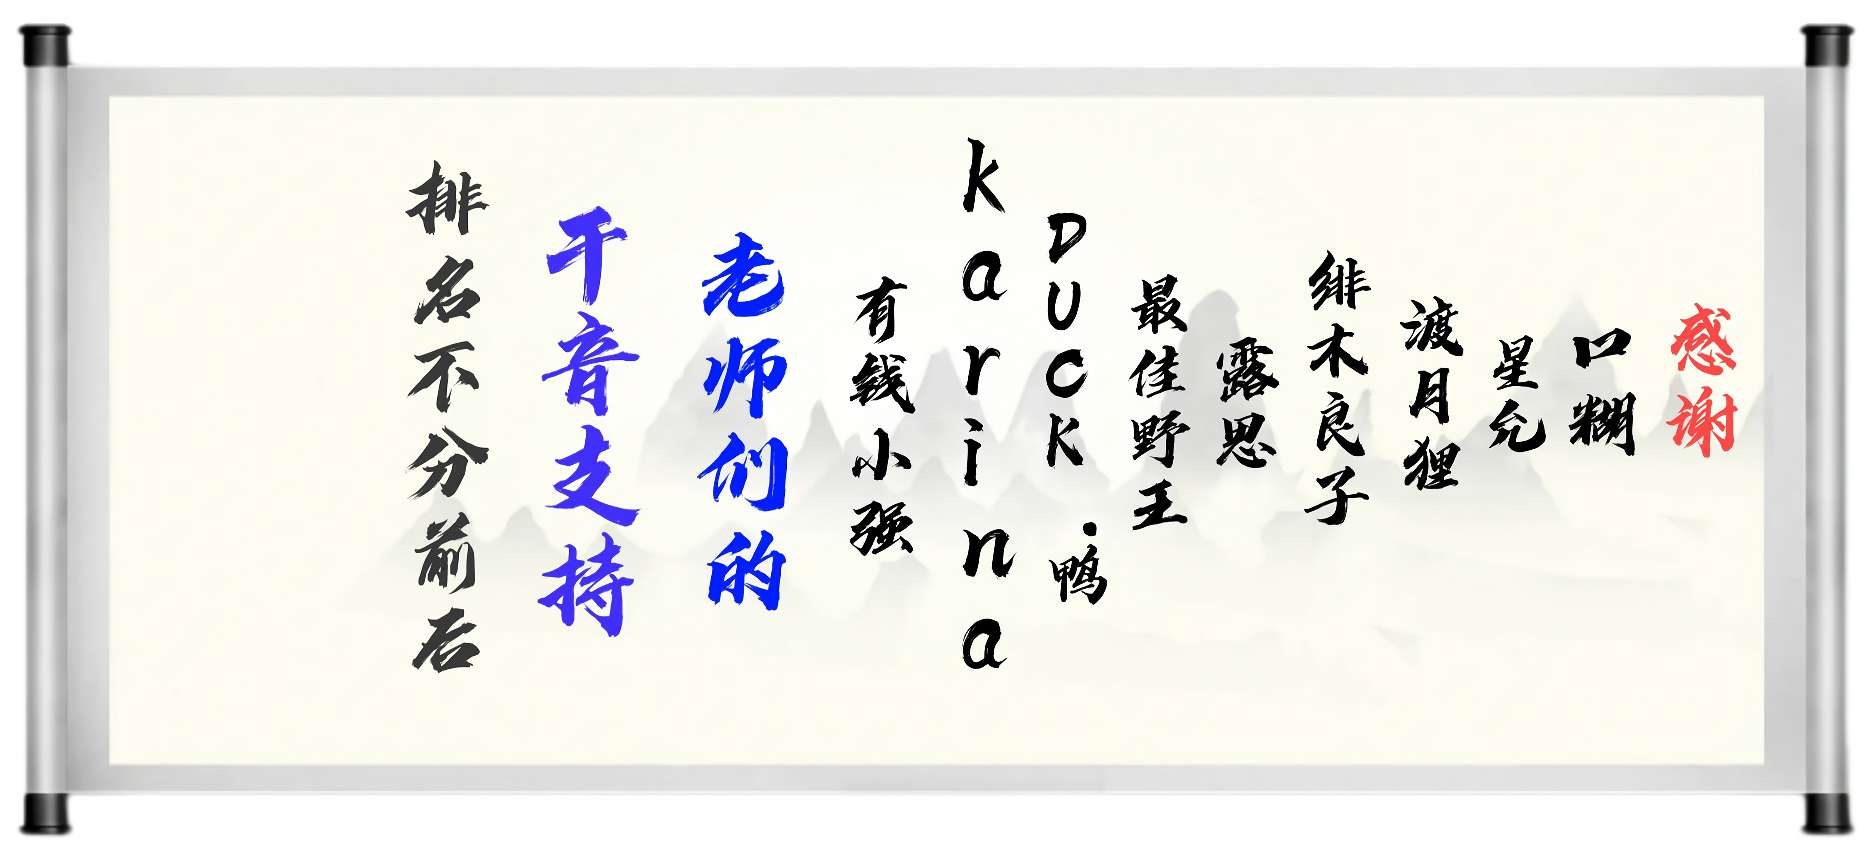 感谢
口糊
星允
渡月狸
绯木良子
露思
最佳野王
DUCK.鸭
karina
有钱小强
老师们的
干音支持
排名不分前后